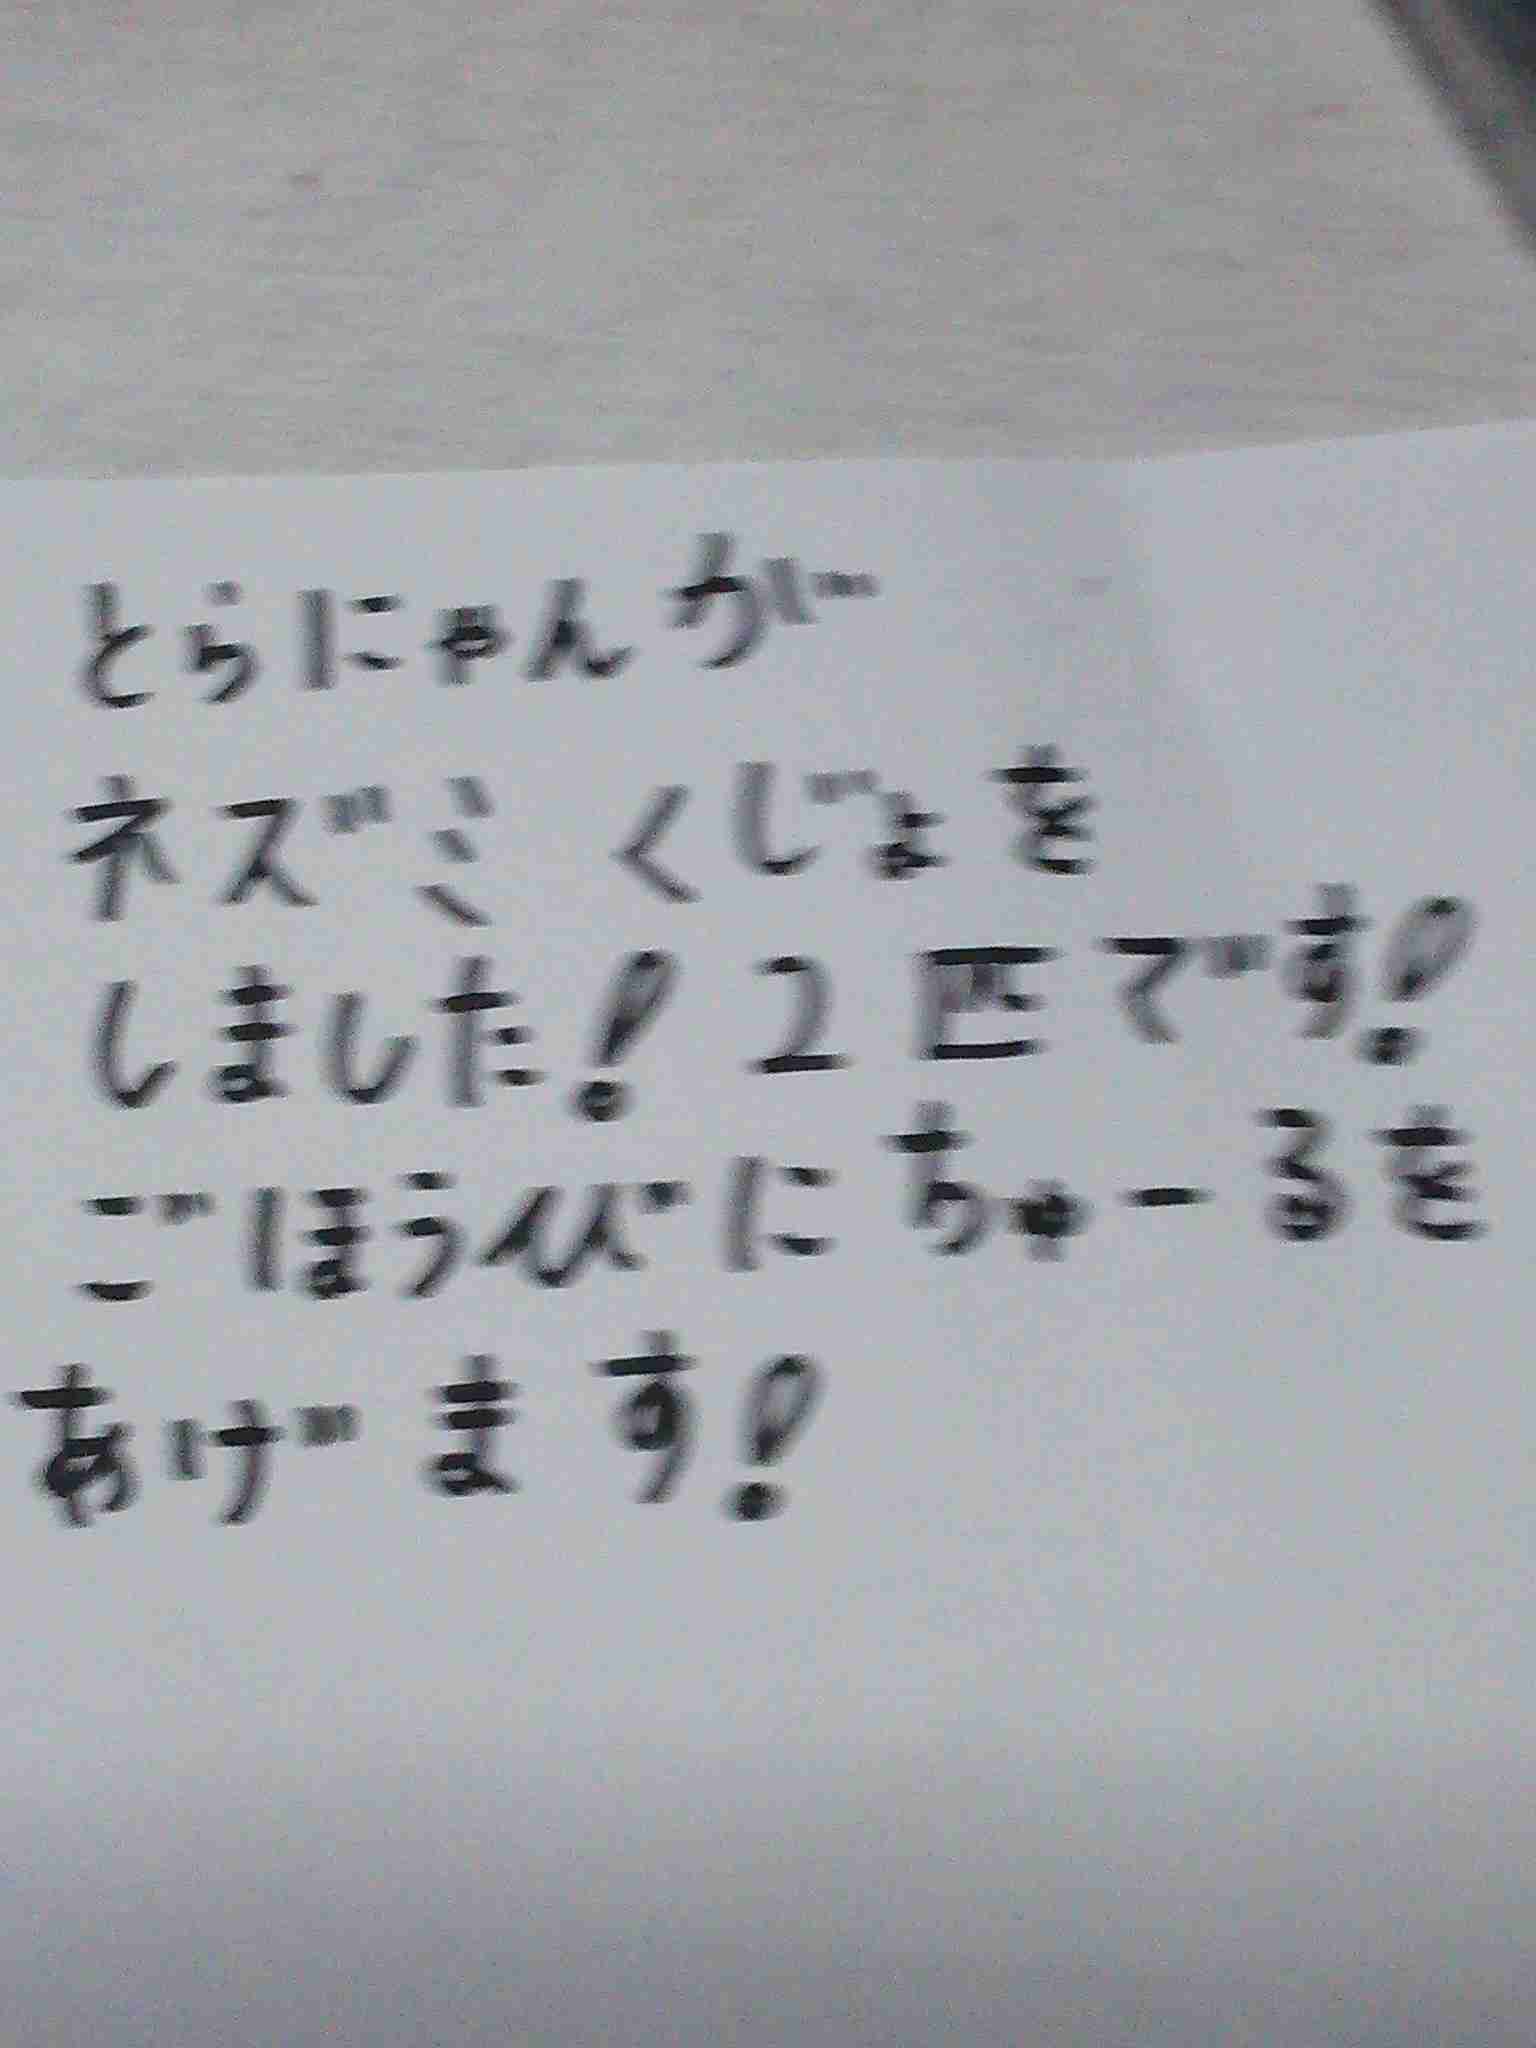 とらにゃんが
ネズミくじょを
しました!2匹です!
ごほうびにちゅーるを
あげます!